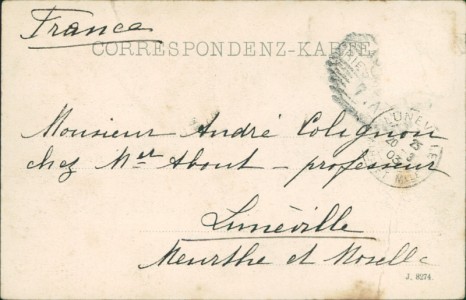 Franca
CORRESPONDENZ-KARTE
LUNEVILLE
Monsieur André Colignon
chez Mr About - professeur
Lunéville
Meurthe et Moselle
J. 8274.